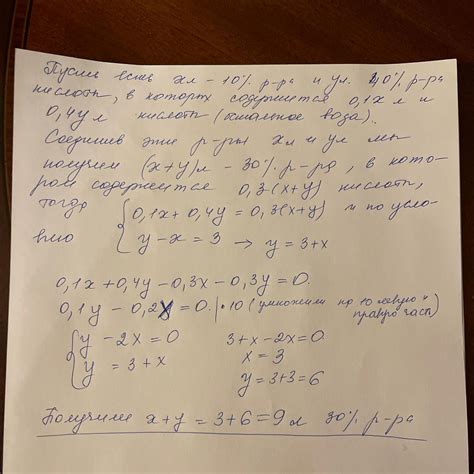 Пусть есть x л – 10% р-ра и y л. 40% р-ра
кислоты, в которых содержится 0,1x л и
0,4y л кислоты (остальное вода).
Соединив эти р-ры x л и y л мы
получим (x+y) л – 30% р-ра, в кото-
ром содержится 0,3(x+y) кислоты,
тогда { 0,1x + 0,4y = 0,3(x+y) и по усло-
вию { y – x = 3 → y = 3+x
0,1x + 0,4y – 0,3x – 0,3y = 0.
0,1y – 0,2x = 0. | · 10 (умножили на 10 левую и
правую части)
{ y – 2x = 0 3+x – 2x = 0
{ y = 3 + x x = 3
y = 3+3 = 6
Получили x + y = 3 + 6 = 9 л 30% р-ра